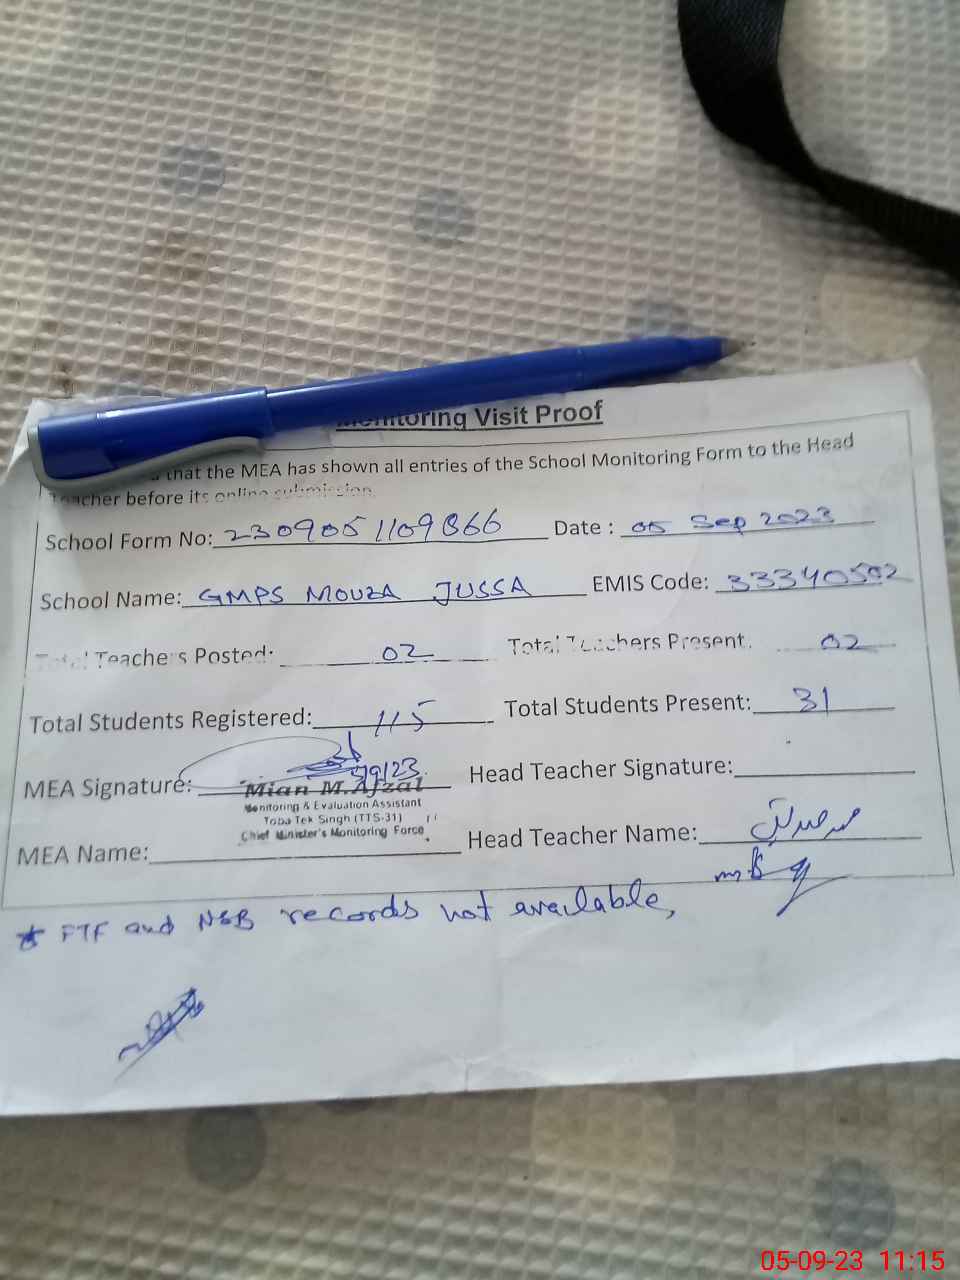 Monitoring Visit Proof
that the MEA has shown all entries of the School Monitoring Form to the Head
Teacher before its online submission.
School Form No: 2309051109866 Date : 05 Sep 2023
School Name: GMPS MOUZA JUSSA EMIS Code: 33340502
Total Teachers Posted: 02 Total Teachers Present. 02
Total Students Registered: 115 Total Students Present: 31
MEA Signature: 5/9/23 Head Teacher Signature:
Mian M. Afzal
Monitoring & Evaluation Assistant
Toba Tek Singh (TTS-31)
Chief Minister's Monitoring Force
MEA Name: Head Teacher Name:
* FTF and NSB records not available,
05-09-23 11:15